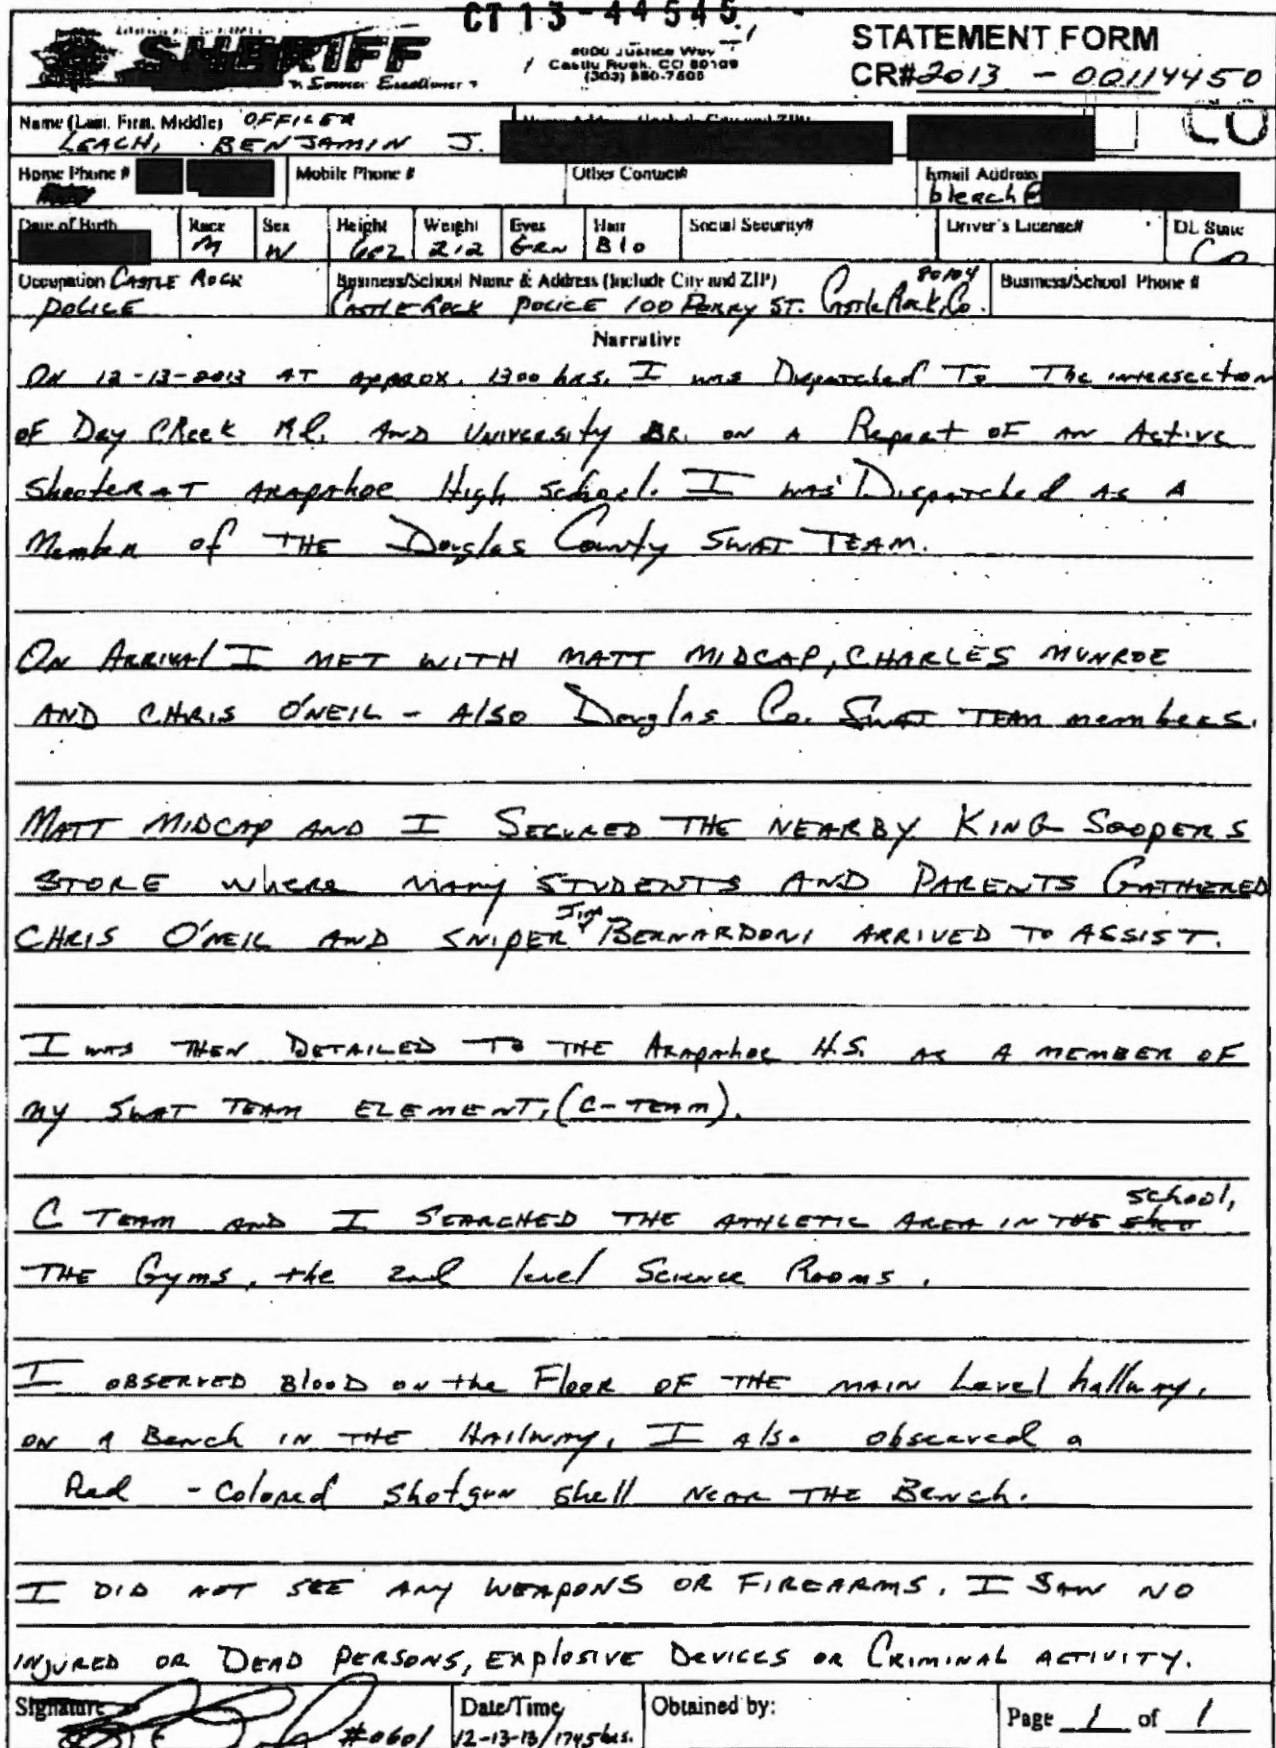 CT 13-44545
SHERIFF
4000 Justice Way
Castle Rock, CO 80109
(303) 660-7505
STATEMENT FORM
CR# 2013 - 00114450
Name (Last, First, Middle) OFFICER
LEACH, BENJAMIN J.
CO
Home Phone #
Mobile Phone #
Other Contact#
Email Address
bleach@
Date of Birth
Race
M
Sex
W
Height
602
Weight
212
Eyes
GRN
Hair
Blo
Social Security#
Driver's License#
DL State
Co
Occupation CASTLE ROCK
POLICE
Business/School Name & Address (Include City and ZIP) 80104
CASTLE ROCK POLICE 100 PERRY ST. Castle Rock, Co.
Business/School Phone #
Narrative
ON 12-13-2013 AT approx. 1300 hrs. I was Dispatched To The intersection
OF Dry CReek Rd. AND UNIVERSITY BR. on A Report OF AN Active
Shooter AT ARAPAHOE High School. I was Dispatched as A
Member of THE Douglas County SWAT TEAM.
ON ARRIVAl I MET WITH MATT MIDCAP, CHARLES MUNROE
AND CHRIS O'NEIL - Also Douglas Co. SWAT TEAM members.
MATT MIDCAP AND I SECURED THE NEARBY KING SOOPERS
STORE where many STUDENTS AND PARENTS GATHERED
CHRIS O'NEIL AND SNIPER Jim BERNARDONI ARRIVED TO ASSIST.
I was THEN DETAILED TO THE Arapahoe H.S. as A MEMBER OF
MY SWAT TEAM ELEMENT, (C-TEAM).
C TEAM AND I SEARCHED THE ATHLETIC AREA IN THE school,
THE Gyms, the 2nd level Science Rooms.
I OBSERVED BlooD on the Floor OF THE MAIN Level hallway,
ON A Bench IN THE HAllway, I Also observed a
Red - Colored Shotgun Shell Near THE Bench.
I DID NOT SEE ANY WEAPONS OR FIREARMS. I SAW NO
INJURED OR DEAD PERSONS, EXPLOSIVE DEVICES OR CRIMINAL ACTIVITY.
Signature
#0601
Date/Time
12-13-13/1745hrs.
Obtained by:
Page 1 of 1